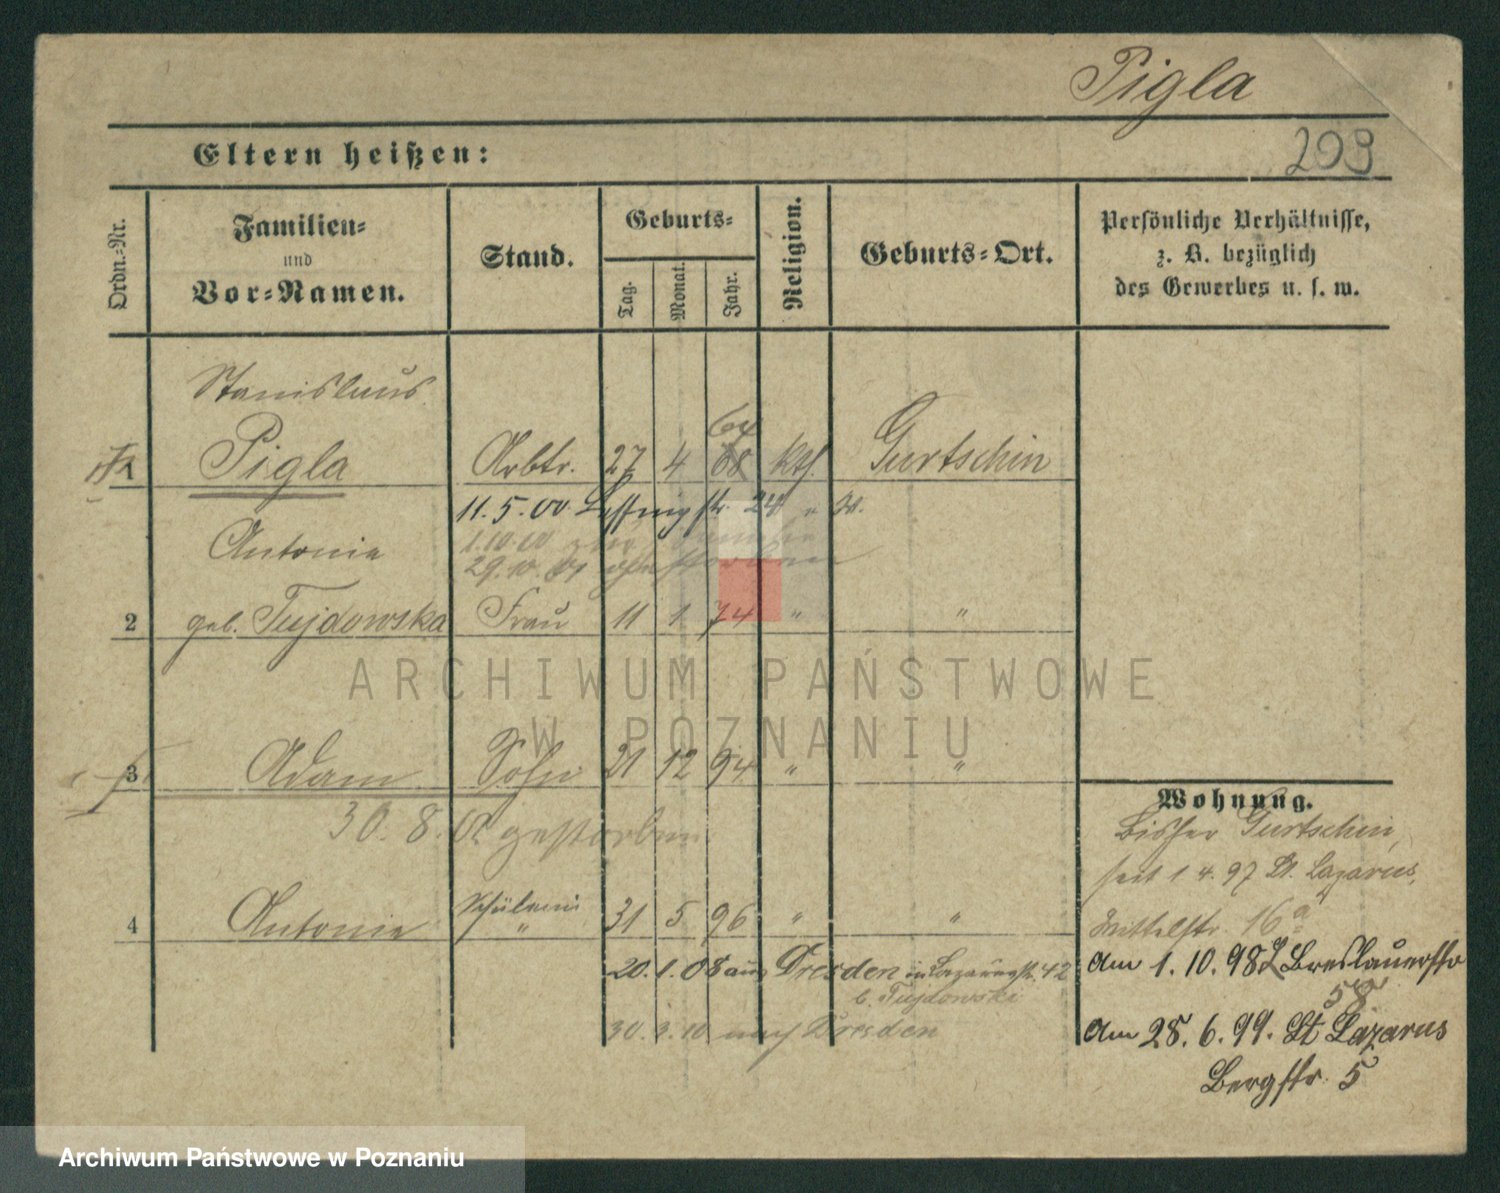 Pigla
203
Eltern heißen:
Ordn.=Nr.
Familien=
und
Vor=Namen.
Stand.
Geburts=
Tag.
Monat.
Jahr.
Religion.
Geburts=Ort.
Persönliche Verhältnisse,
z. B. bezüglich
des Gewerbes u. s. w.
Stanislaus
64
1 Pigla Arbtr. 27 4 68 kth. Gurtschin
11. 5. 00. str. 24
Antonie 1.10.00
29.10.01
2 geb. Tujdowska Frau 11 1 74 " "
ARCHIWUM PAŃSTWOWE
W POZNANIU
3 Adam Sohn 21 12 94 " "
30. 8. gestorben
Schülerin
4 Antonie " 31 5 96 " "
20. 1. 08 aus Dresden Lazarusstr. 42
b. Tujdowski
30. 3. 10 nach Dresden
Wohnung.
bisher Gurtschin,
seit 1 4. 97 St. Lazarus,
Mittelstr. 16a
Am 1. 10. 98 Breslauerstr
58
Am 28. 6. 99. St Lazarus
Bergstr. 5
Archiwum Państwowe w Poznaniu